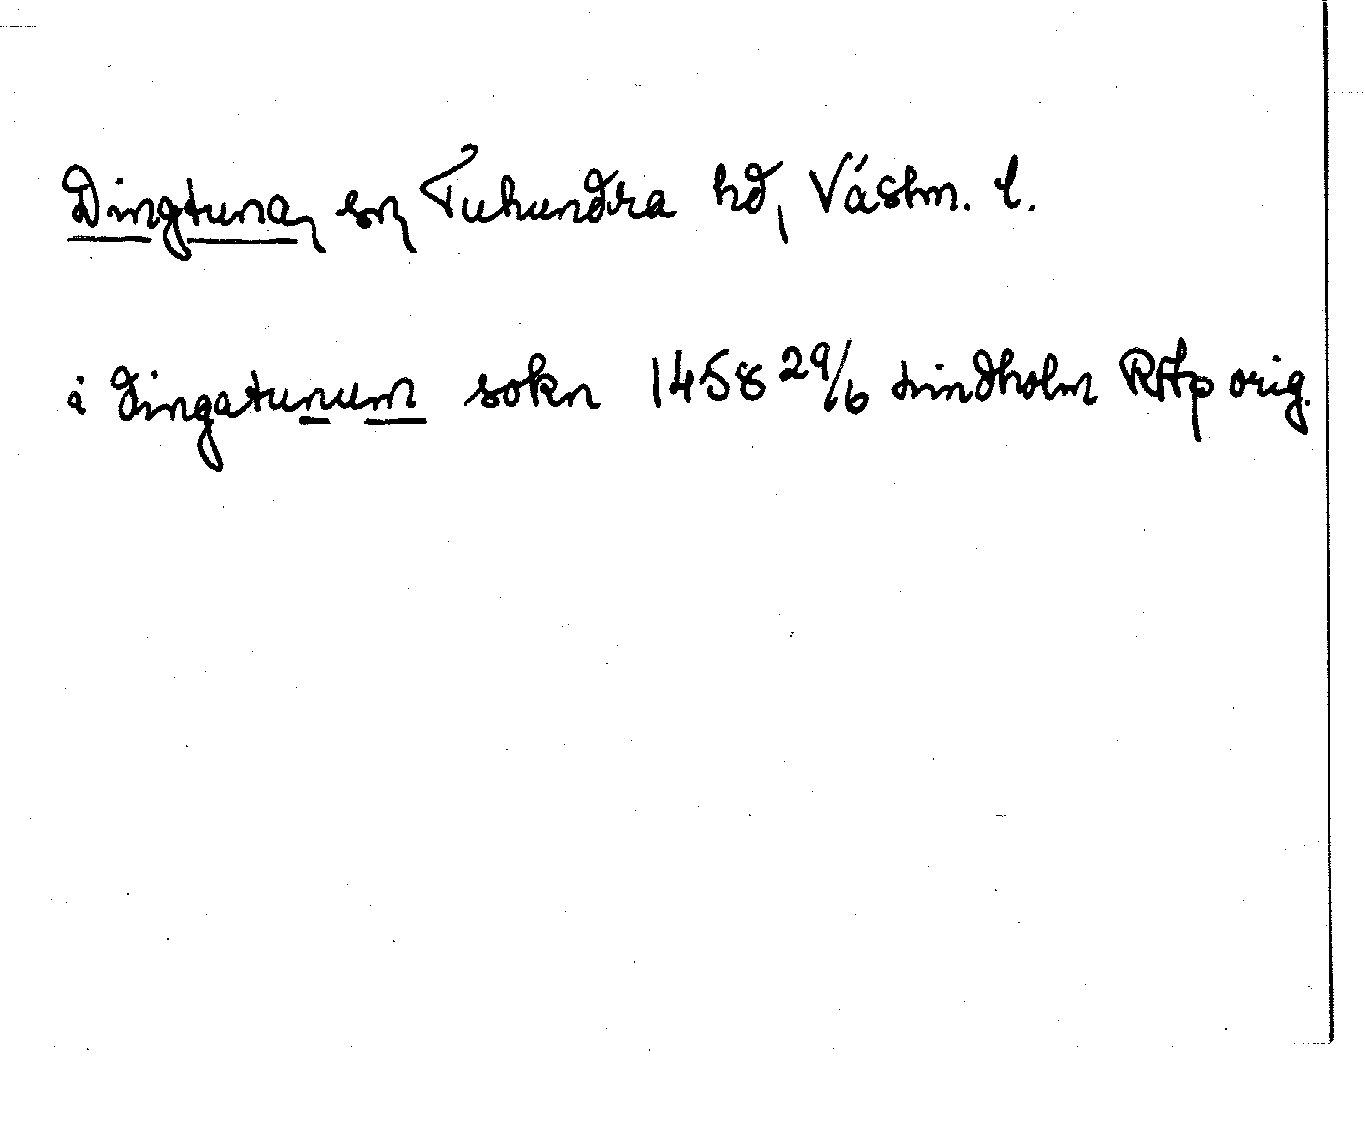 Dingtuna, sn, Tuhundra hd, Västm. l.
i dingatunum sokn 1458 29/6 Lindholm RAp orig.